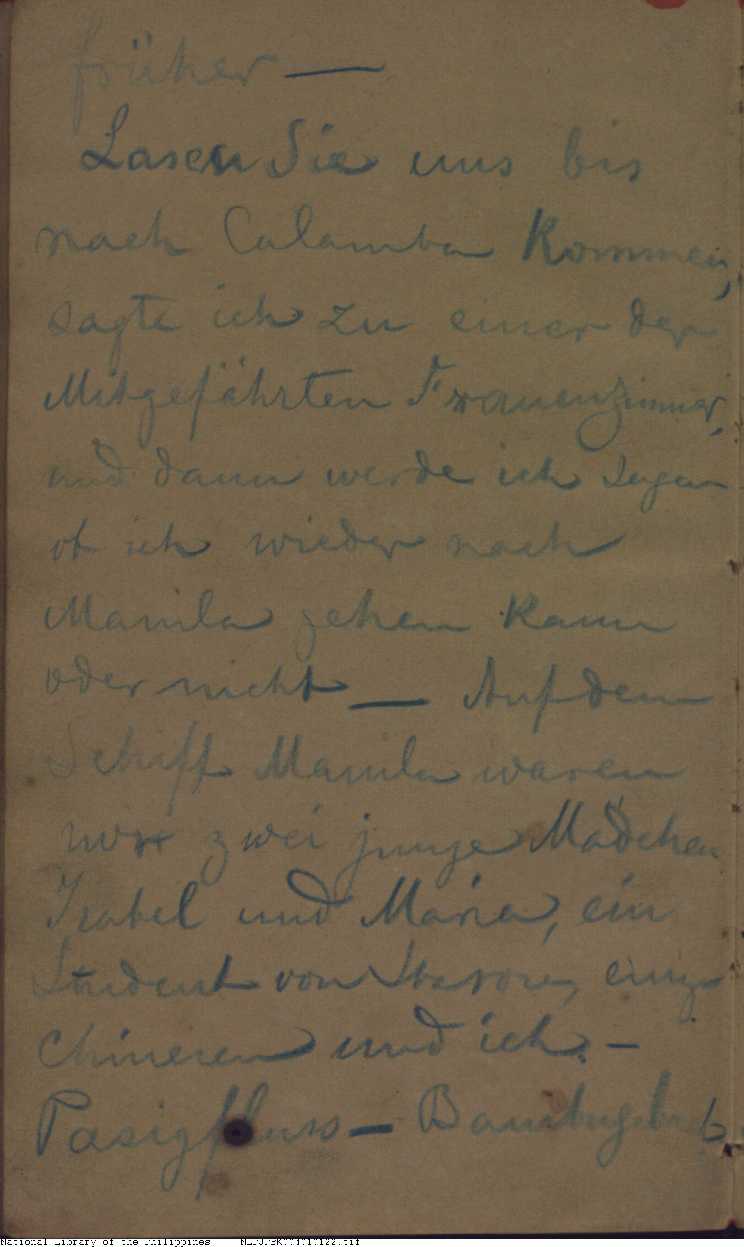 früher —
Lasen Sie uns bis
nach Calamba Kommen,
sagte ich zu einer der
Mitgefährten Frauenzimmer,
und dann werde ich sagen
ob ich wieder nach
Manila gehen Kann
oder nicht — Auf dem
Schiff Manila waren
nur zwei junge Mädchen
Isabel und Maria, ein
Student von einige
Chinesen und ich. —
Pasigfluss —
National Library of the Philippines